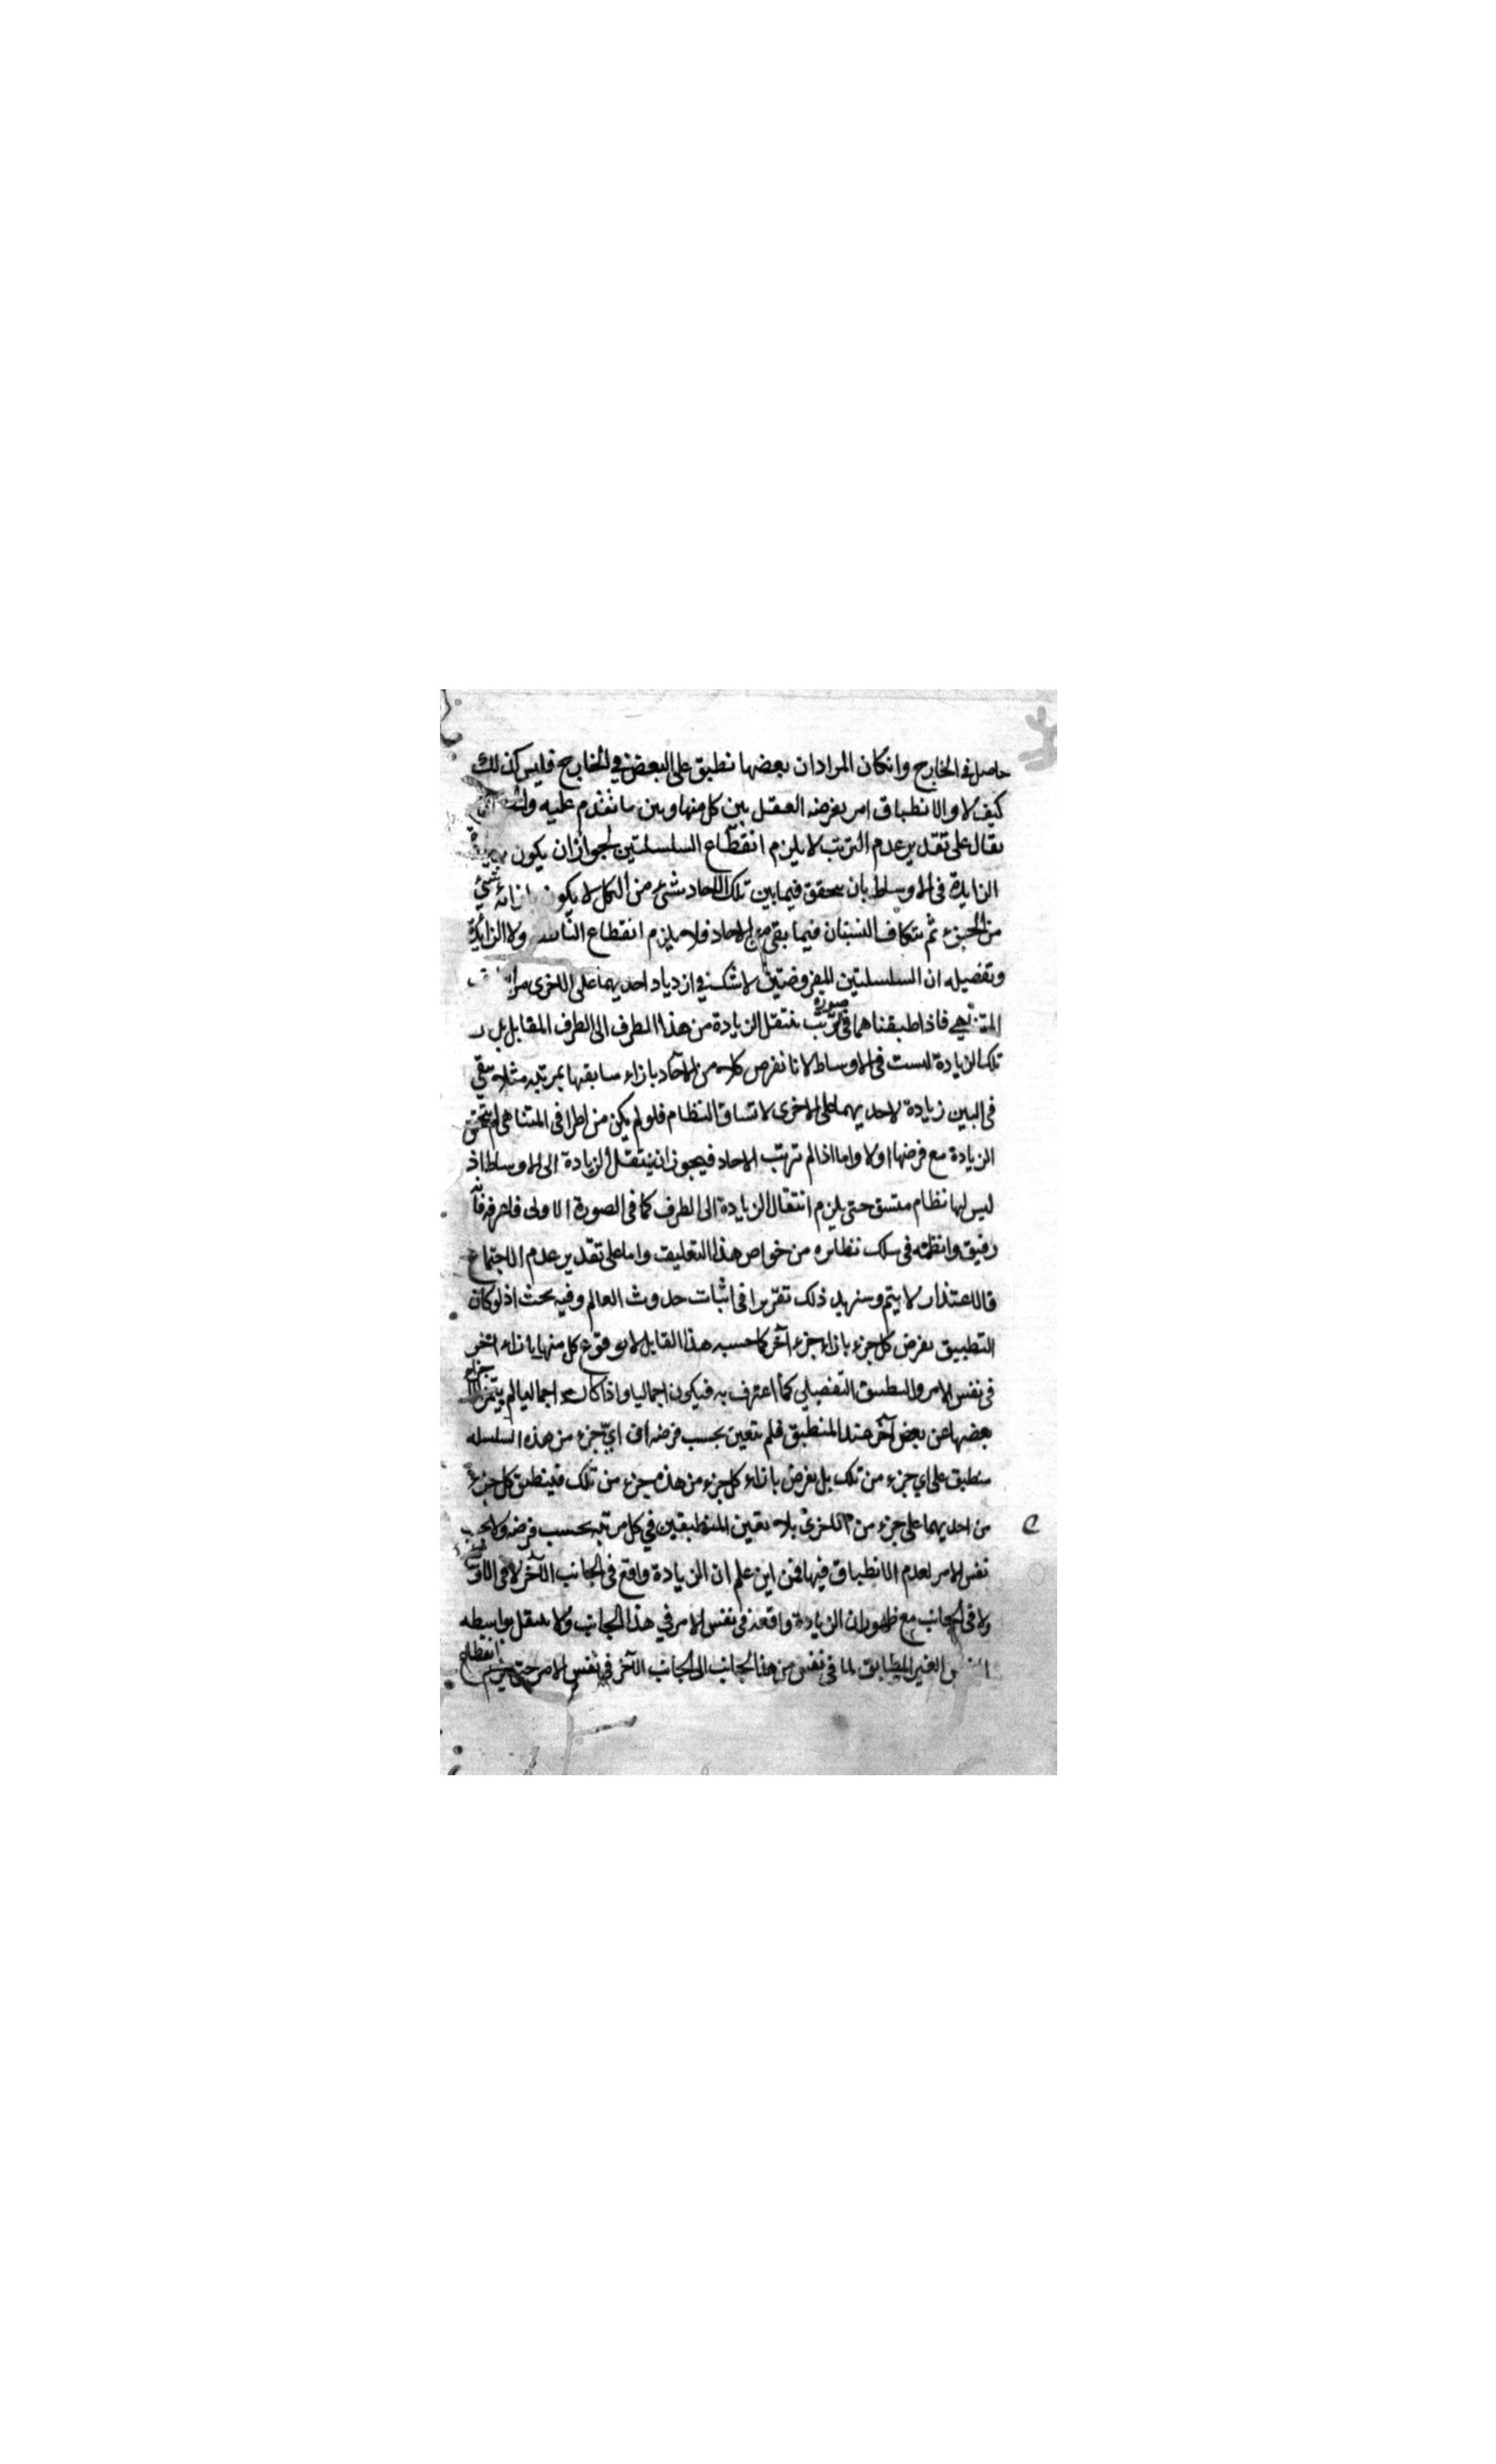 حاصل في الخارج وانكان المراد ان بعضها نطبق على البعض في الخارج فليس كذلك
كيف لا والانطباق امر يفرضه العقل بين كل منها وبين ما تقدم عليه
يقال على تقدير عدم الترتب لا يلزم انقطاع السلسلتين لجواز ان يكون
الزايدة في الاوساط بان يتحقق فيما بين تلك الاحاد شئ من الكل لا يكون بازائه شئ
من الجزء ثم يتكاف النسبتان فيما بقي من الاحاد فلا يلزم انقطاع ولا الزايدة
وتفصيله ان السلسلتين المفروضتين لا شك في ازدياد احديهما على الاخرى
المتناهي فاذا طبقناهما في صورة الترتب ننتقل الزيادة من هذا الطرف الى الطرف المقابل بل
تلك الزيادة ليست في الاوساط لانا نفرض كلا من الآحاد بازاء سابقها بمرتبة مثلا
في البين زيادة لاحديهما على الاخرى لاتساق النظام فلو لم يكن من اطرافي المتناهي لم يتحقق
الزيادة مع فرضها اولا واما اذا لم ترتب الاحاد فيجوز ان ينتقل الزيادة الى الاوساط اذ
ليس لها نظام متسق حتى يلزم انتقال الزيادة الى الطرف كما في الصورة الاولى فاعرفه فانه
دقيق وانظمه في سلك نظائره من خواص هذا التعليق واما على تقدير عدم الاجتماع
فالاعتذار لا يتم وسنزيد ذلك تقريرا في اثبات حدوث العالم وفيه بحث اذ لو كان
التطبيق بفرض كل جزء بازاء جزء آخر كما حسبه هذا القايل لا بوقوع كل منها بازاء آخر
في نفس الامر والتطبيق التفصيلي كما اعترف به فيكون اجماليا واذا كان اجماليا لم يتميز اجزاء
بعضها عن بعض آخر عند المنطبق فلم يتعين بحسب فرضه ان اي جزء من هذه السلسله
منطبق على اي جزء من تلك بل يفرض بازاء كل جزء من هذه جزء من تلك فينطبق كل جزء
من احديهما على جزء من الاخرى بلا تعين المنطبقين في كل مرتبة بحسب فرضه ولا بحسب
نفس الامر لعدم الانطباق فيها فمن اين علم ان الزيادة واقع في الجانب الآخر لا في
ولا في الجانب مع ظهور ان الزيادة واقعة في نفس الامر في هذا الجانب ولا ينتقل بواسطه
الغير المطابق لما في نفس من هذا الجانب الى الجانب الآخر في نفس الامر حتى يلزم انقطاع